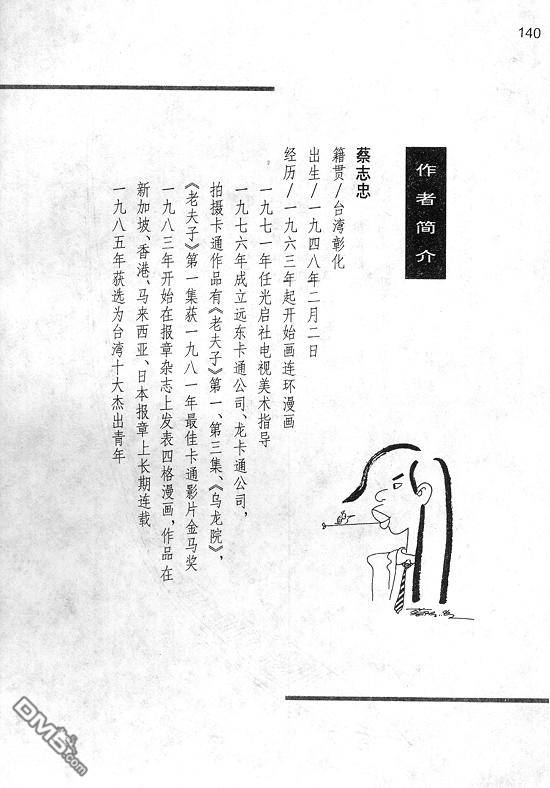 140
作者简介
蔡志忠
籍贯/台湾彰化
出生/一九四八年二月二日
经历/一九六三年起开始画连环漫画
一九七一年任光启社电视美术指导
一九七六年成立远东卡通公司、龙卡通公司，
拍摄卡通作品有《老夫子》第一、第三集、《乌龙院》，
《老夫子》第一集获一九八一年最佳卡通影片金马奖
一九八三年开始在报章杂志上发表四格漫画，作品在
新加坡、香港、马来西亚、日本报章上长期连载
一九八五年获选为台湾十大杰出青年